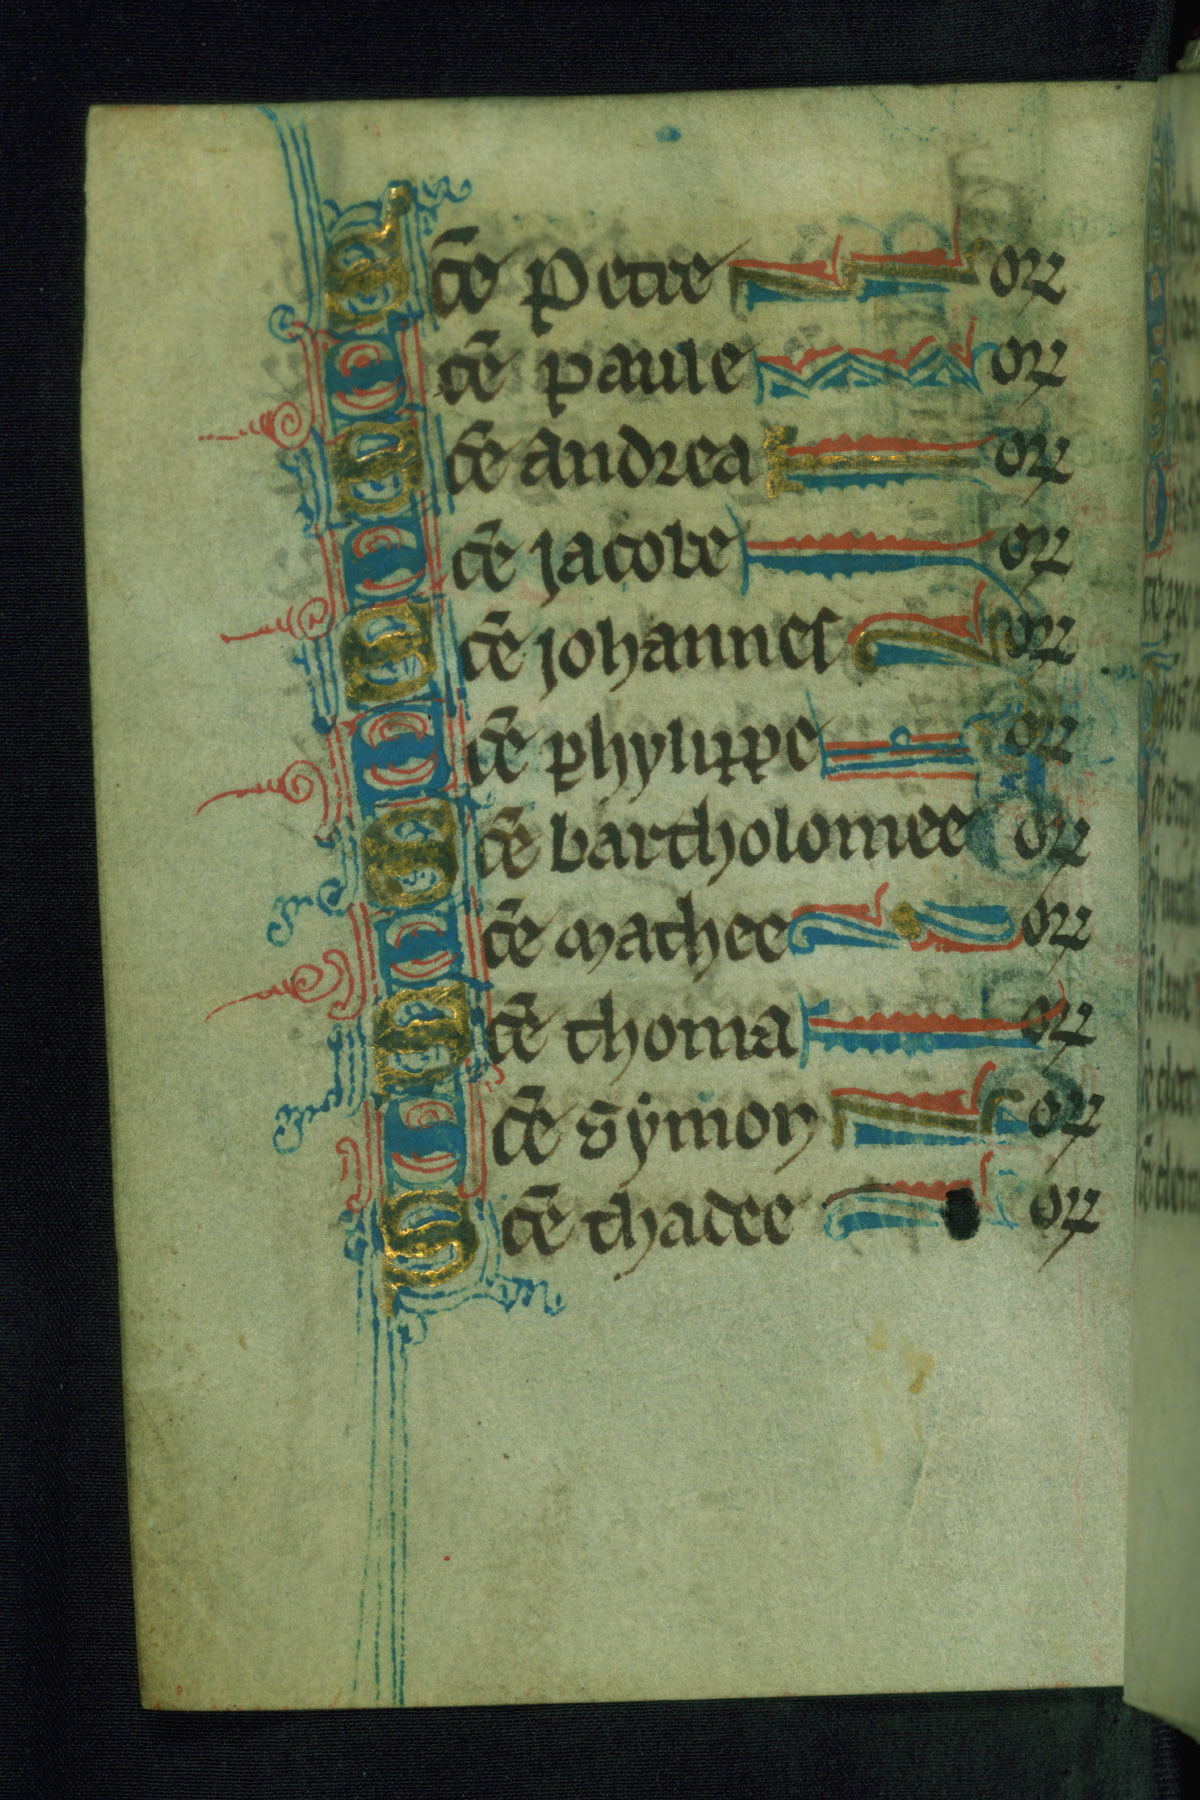 Sc̄e Petre or̄
Sc̄e paule or̄
Sc̄e andrea or̄
Sc̄e jacobe or̄
Sc̄e johannes or̄
Sc̄e phylippe or̄
Sc̄e bartholomee or̄
Sc̄e mathee or̄
Sc̄e thoma or̄
Sc̄e symon or̄
Sc̄e thadee or̄